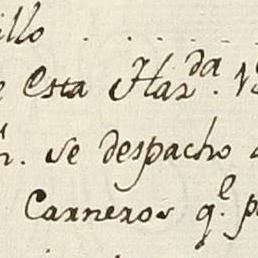 illo . . . . .
e Esta Haz.da
n. se despacho
Carneros q.e p